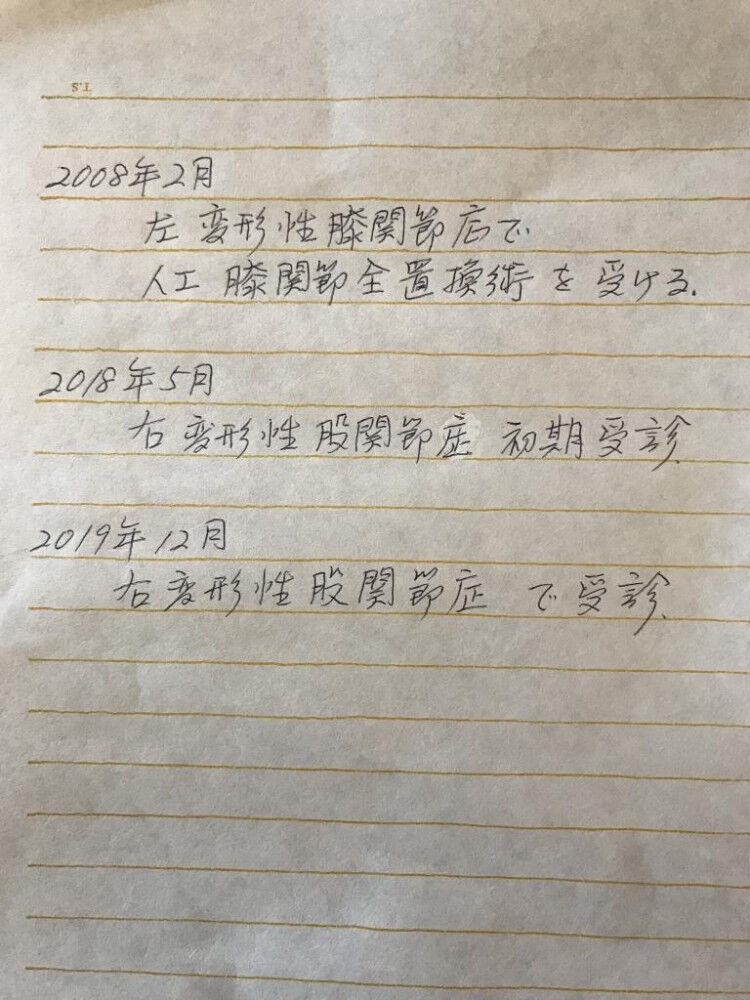 T.S
2008年2月
左変形性膝関節症で
人工膝関節全置換術を受ける.
2018年5月
右変形性股関節症 初期受診.
2019年12月
右変形性股関節症 で受診.